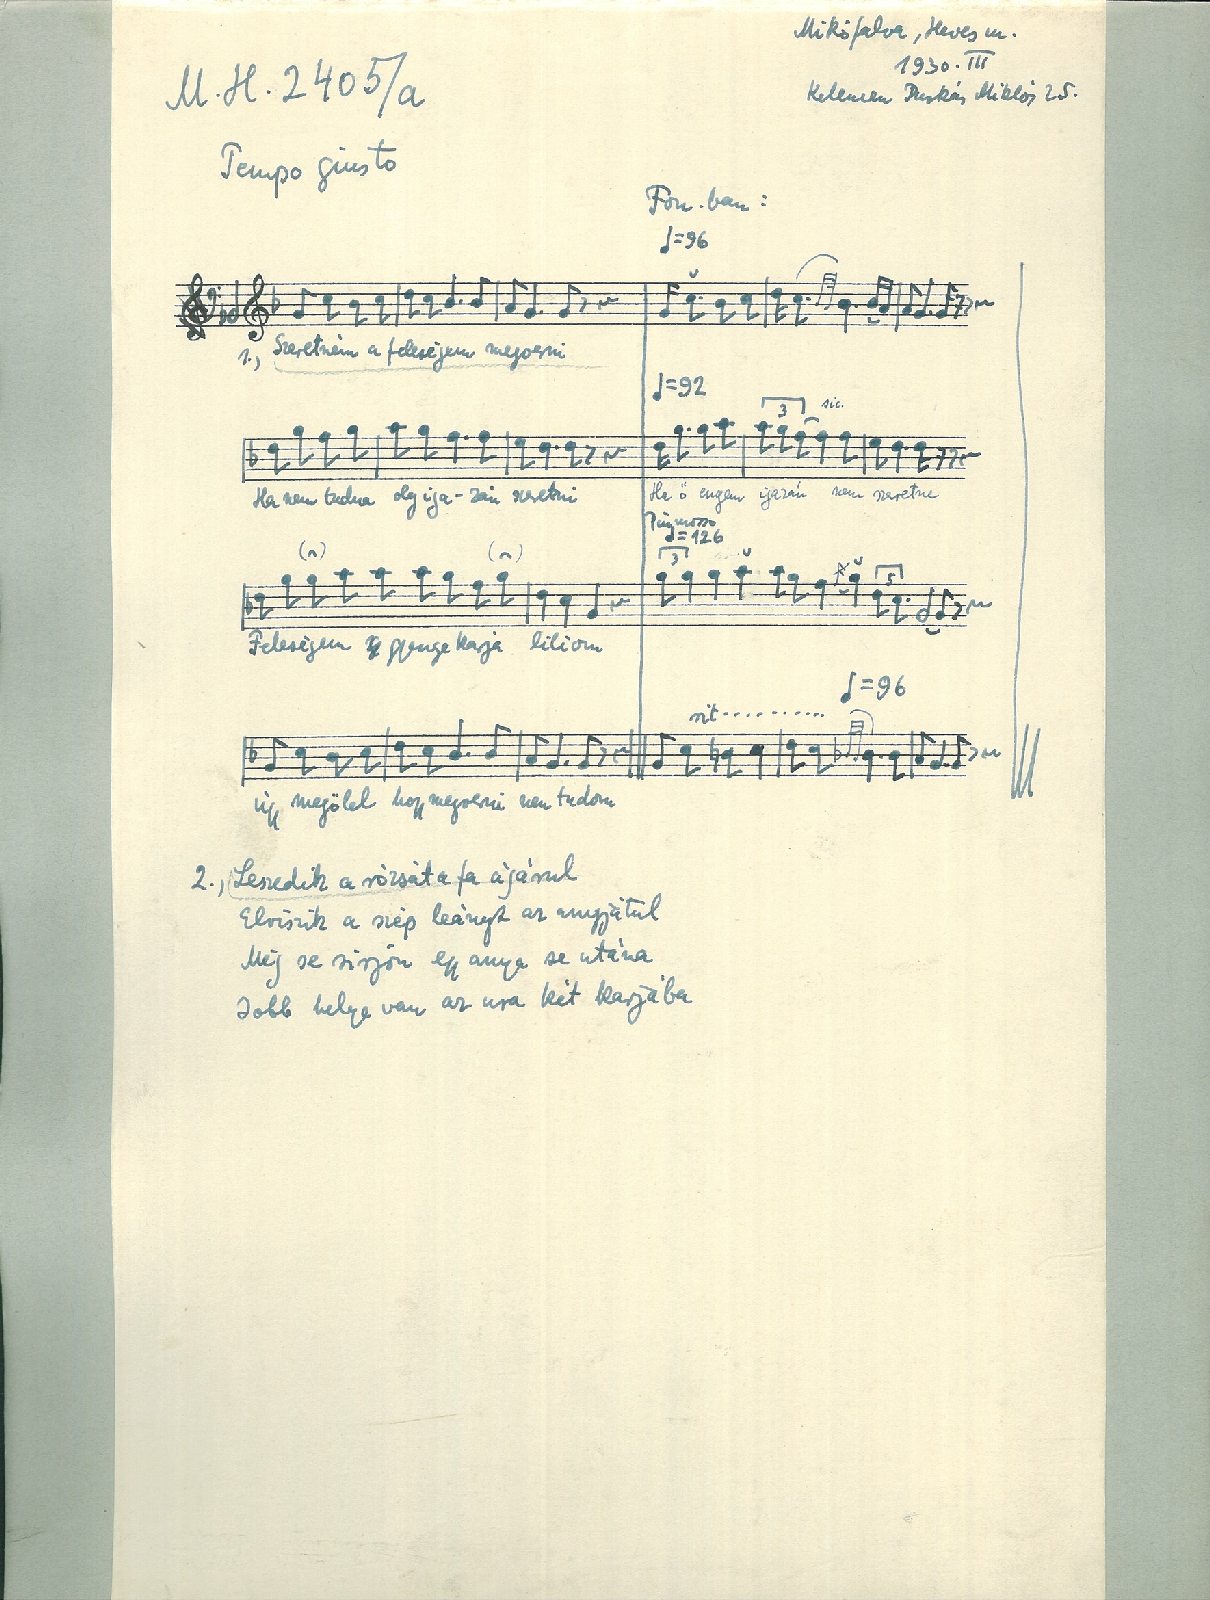 Mikófalva, Heves m.
1930. III
Kelemen Puskás Miklós 25.
M.H. 2405/a
Tempo giusto
Fon.-ban:
♩=96
1., Szeretném a feleségem megverni
♩=92
3
sic.
Ha nem tudna oly iga-zán szeretni
Ha ő engem igazán nem szeretne
Più mosso
♩=126
3
5
Feleségem gyenge karja liliom
rit..........
♩=96
úgy megölel hogy megverni nem tudom
2., Leszedik a rózsát a fa ágárul
Elviszik a szép leányt az anyjátul
Még se sirjon egy anya se utána
Jobb helye van az ura két karjába